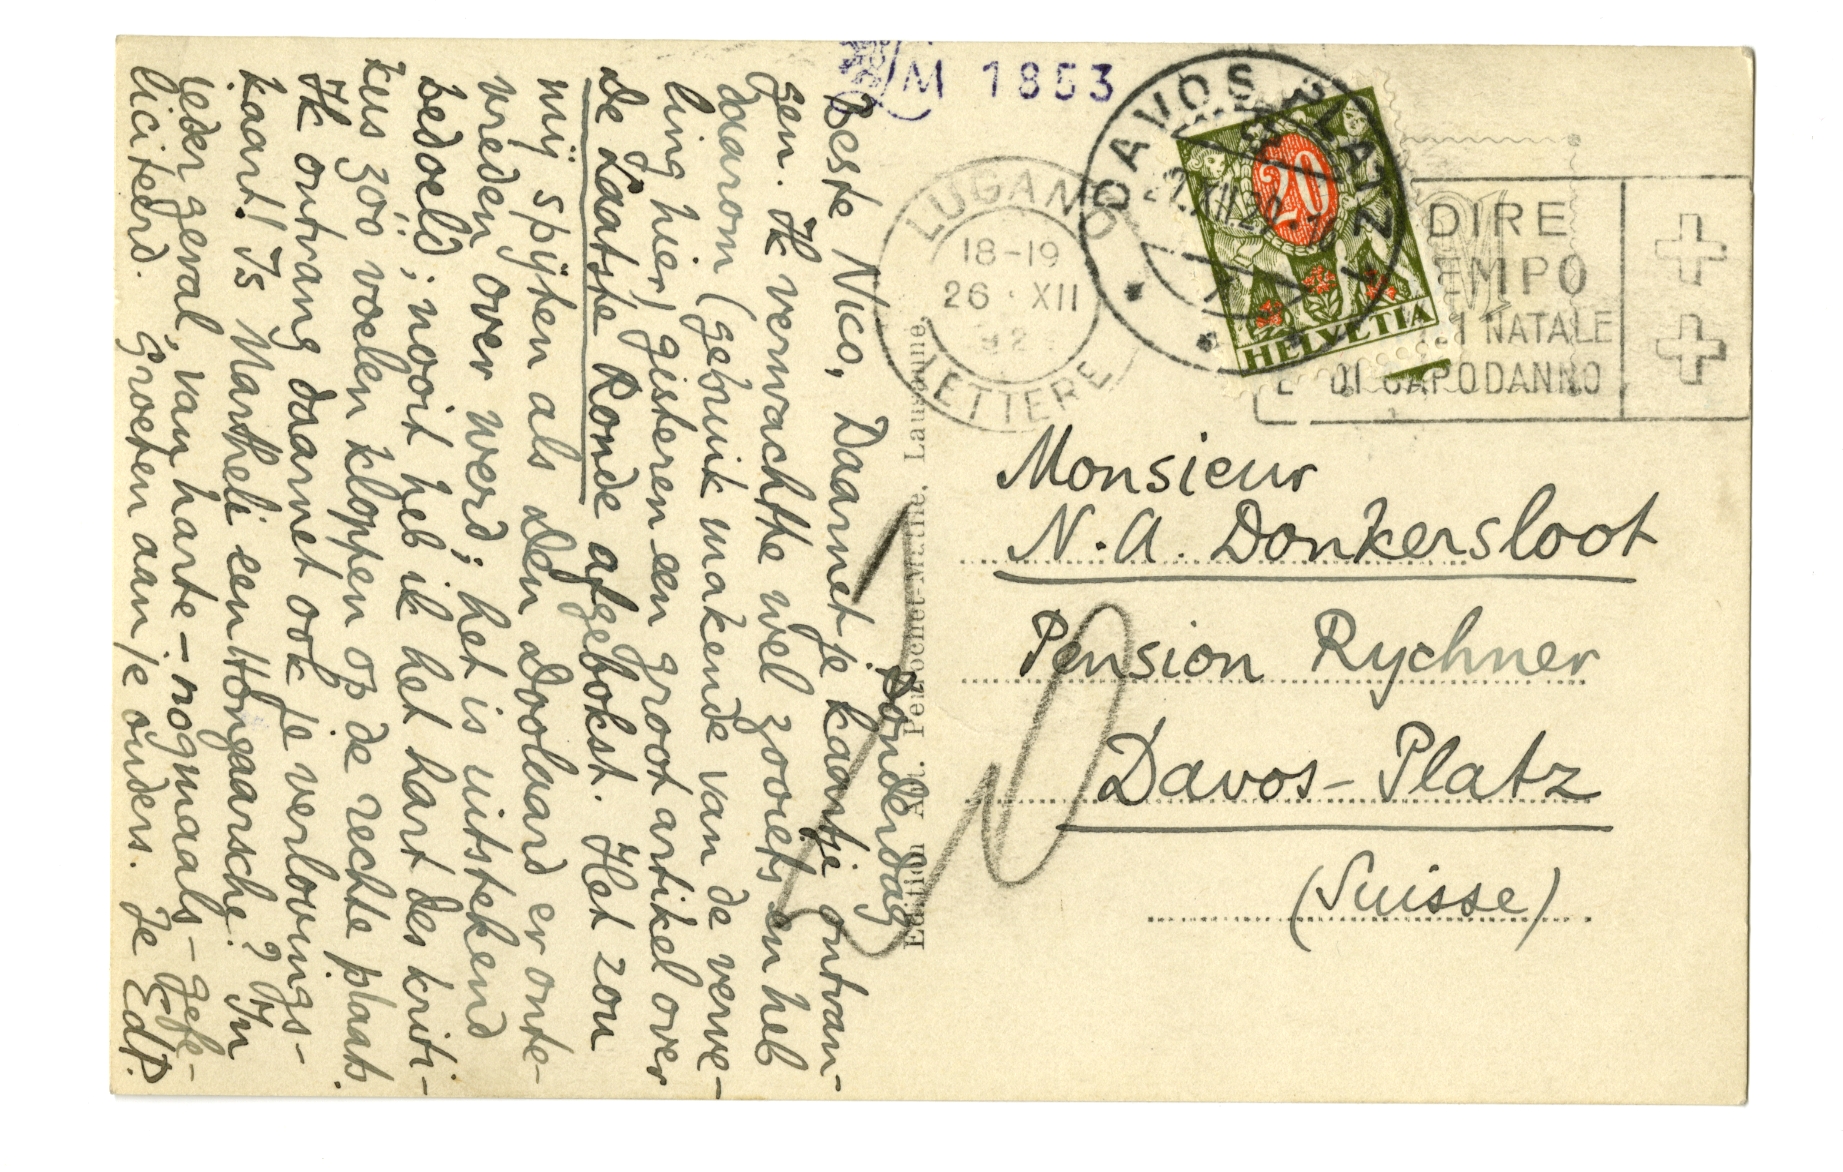 M 1853
LUGANO
18-19
26·XII
LETTERE
DAVOS PLATZ
20
HELVETIA
DIRE
EMPO
NATALE
E DI CAPODANNO
Donderdag
Beste Nico, Daarnet je kaartje ontvan-
gen. Ik verwachtte wel zooiets en heb
daarom (gebruik makende van de verve-
ling hier) gisteren een groot artikel over
de Laatste Ronde afgebokst. Het zou
mij spijten als den Doolaard er onte-
vreden over werd; het is uitstekend
bedoeld; nooit heb ik het hart des kriti-
kus zóó voelen kloppen op de rechte plaats.
Ik ontvang daarnet ook je verlovings-
kaart! Is Martheli een Hongaarsche? In
ieder geval, van harte – nogmaals – gefe-
liciteerd. Groeten aan je ouders. Je EdP.
Edition Art. Perrochet-Matile, Lausanne.
20
Monsieur
N.A. Donkersloot
Pension Rychner
Davos-Platz
(Suisse)